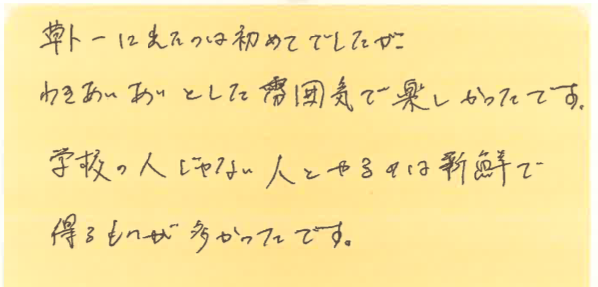 草トーに来たのは初めてでしたが
わきあいあいとした雰囲気で楽しかったです。
学校の人じゃない人とやるのは新鮮で
得るものが多かったです。